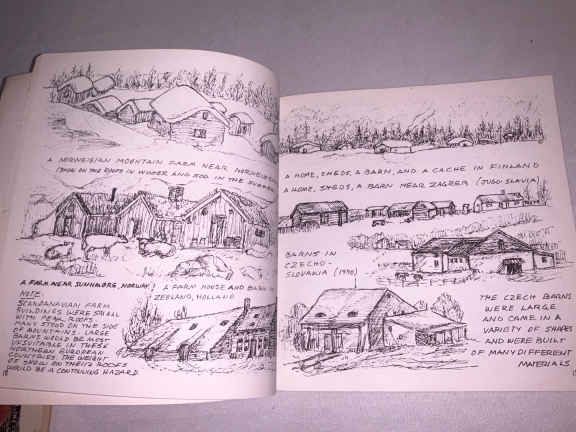 A NORWEGIAN MOUNTAIN FARM NEAR
(SNOW ON THE ROOFS IN WINTER AND SOD IN THE SUMMER
A FARM NEAR SUNNALORG, NORWAY!
A FARM HOUSE AND BARN IN
ZEELAND, HOLLAND
NOTE
SCANDANAVIAN FARM
BUILDINGS WERE SMALL
WITH PEAK ROOFS.
MANY STOOD ON THE SIDE
OF MOUNTAINS. LARGE
BARNS WOULD BE MOST
UNSUITABLE IN THESE
NORTHERN EUROPEAN
COUNTRIES. THE WEIGHT
OF SNOW ON THEIR ROOFS
WOULD BE A CONTINUING HAZARD
18
A HOME, SHEDS, A BARN, AND A CACHE IN FINLAND
A HOME, SHEDS, A BARN NEAR ZAGREB (JUGO-SLAVIA)
BARNS IN
CZECHO-
SLOVAKIA (1990)
THE CZECH BARNS
WERE LARGE
AND CAME IN A
VARIETY OF SHAPES
AND WERE BUILT
OF MANY DIFFERENT
MATERIALS